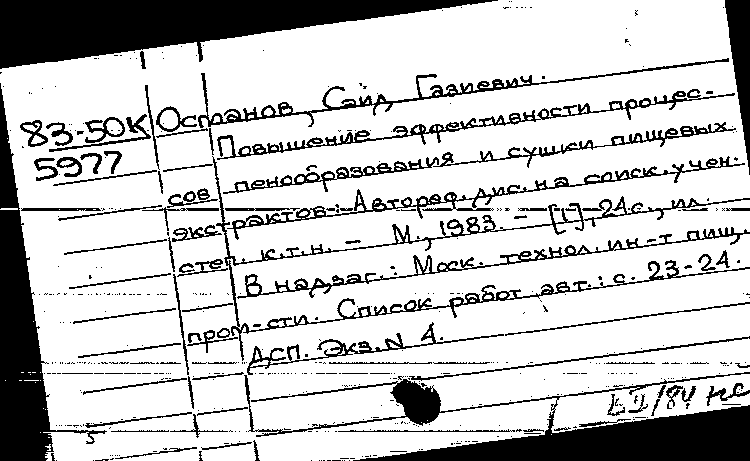 83-50К Оспанов, Саид Газиевич.
5977 Повышение эффективности процес-
сов пенообразования и сушки пищевых
экстрактов.: Автореф. дис. на соиск. учен.
степ. к.т.н. – М., 1983. – [1], 24с., ил.
В надзаг.: Моск. технол. ин-т пищ.
пром-сти. Список работ авт.: с. 23-24.
ДСП. Экз. N 4.